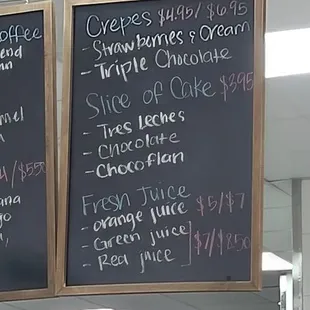 offee
Crepes $4.95/$6.95
- Strawberries & Cream
- Triple Chocolate
Slice of Cake $3.95
- Tres Leches
- Chocolate
- Chocoflan
Fresh Juice
- orange juice $5/$7
- Green juice
- Red juice $7/$8.50